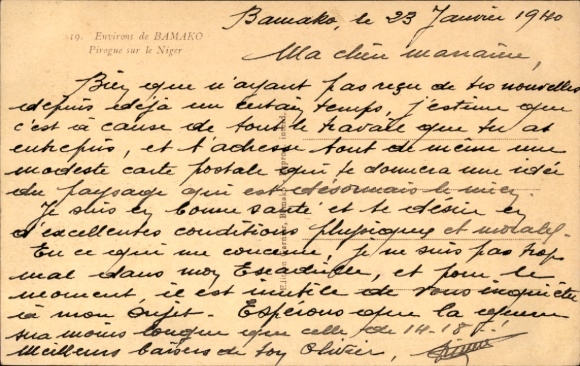 Bamako, le 23 Janvier 1940
19. Environs de BAMAKO
Pirogue sur le Niger
Ma chère marraine,
Bien que n'ayant pas reçu de tes nouvelles
depuis déjà un certain temps, j'estime que
c'est à cause de tout le travail que tu as
entrepris, et t'adresse tout de même une
modeste carte postale qui te donnera une idée
du paysage qui est désormais le mien.
Je suis en bonne santé et te désire en
d'excellentes conditions physiques et morales.
En ce qui me concerne, je ne suis pas trop
mal dans mon Escadrille, et pour le
moment, il est inutile de vous inquiéter
à mon sujet. Espérons que la guerre
sera moins longue que celle de 14-18!
Meilleurs baisers de ton Olivier,